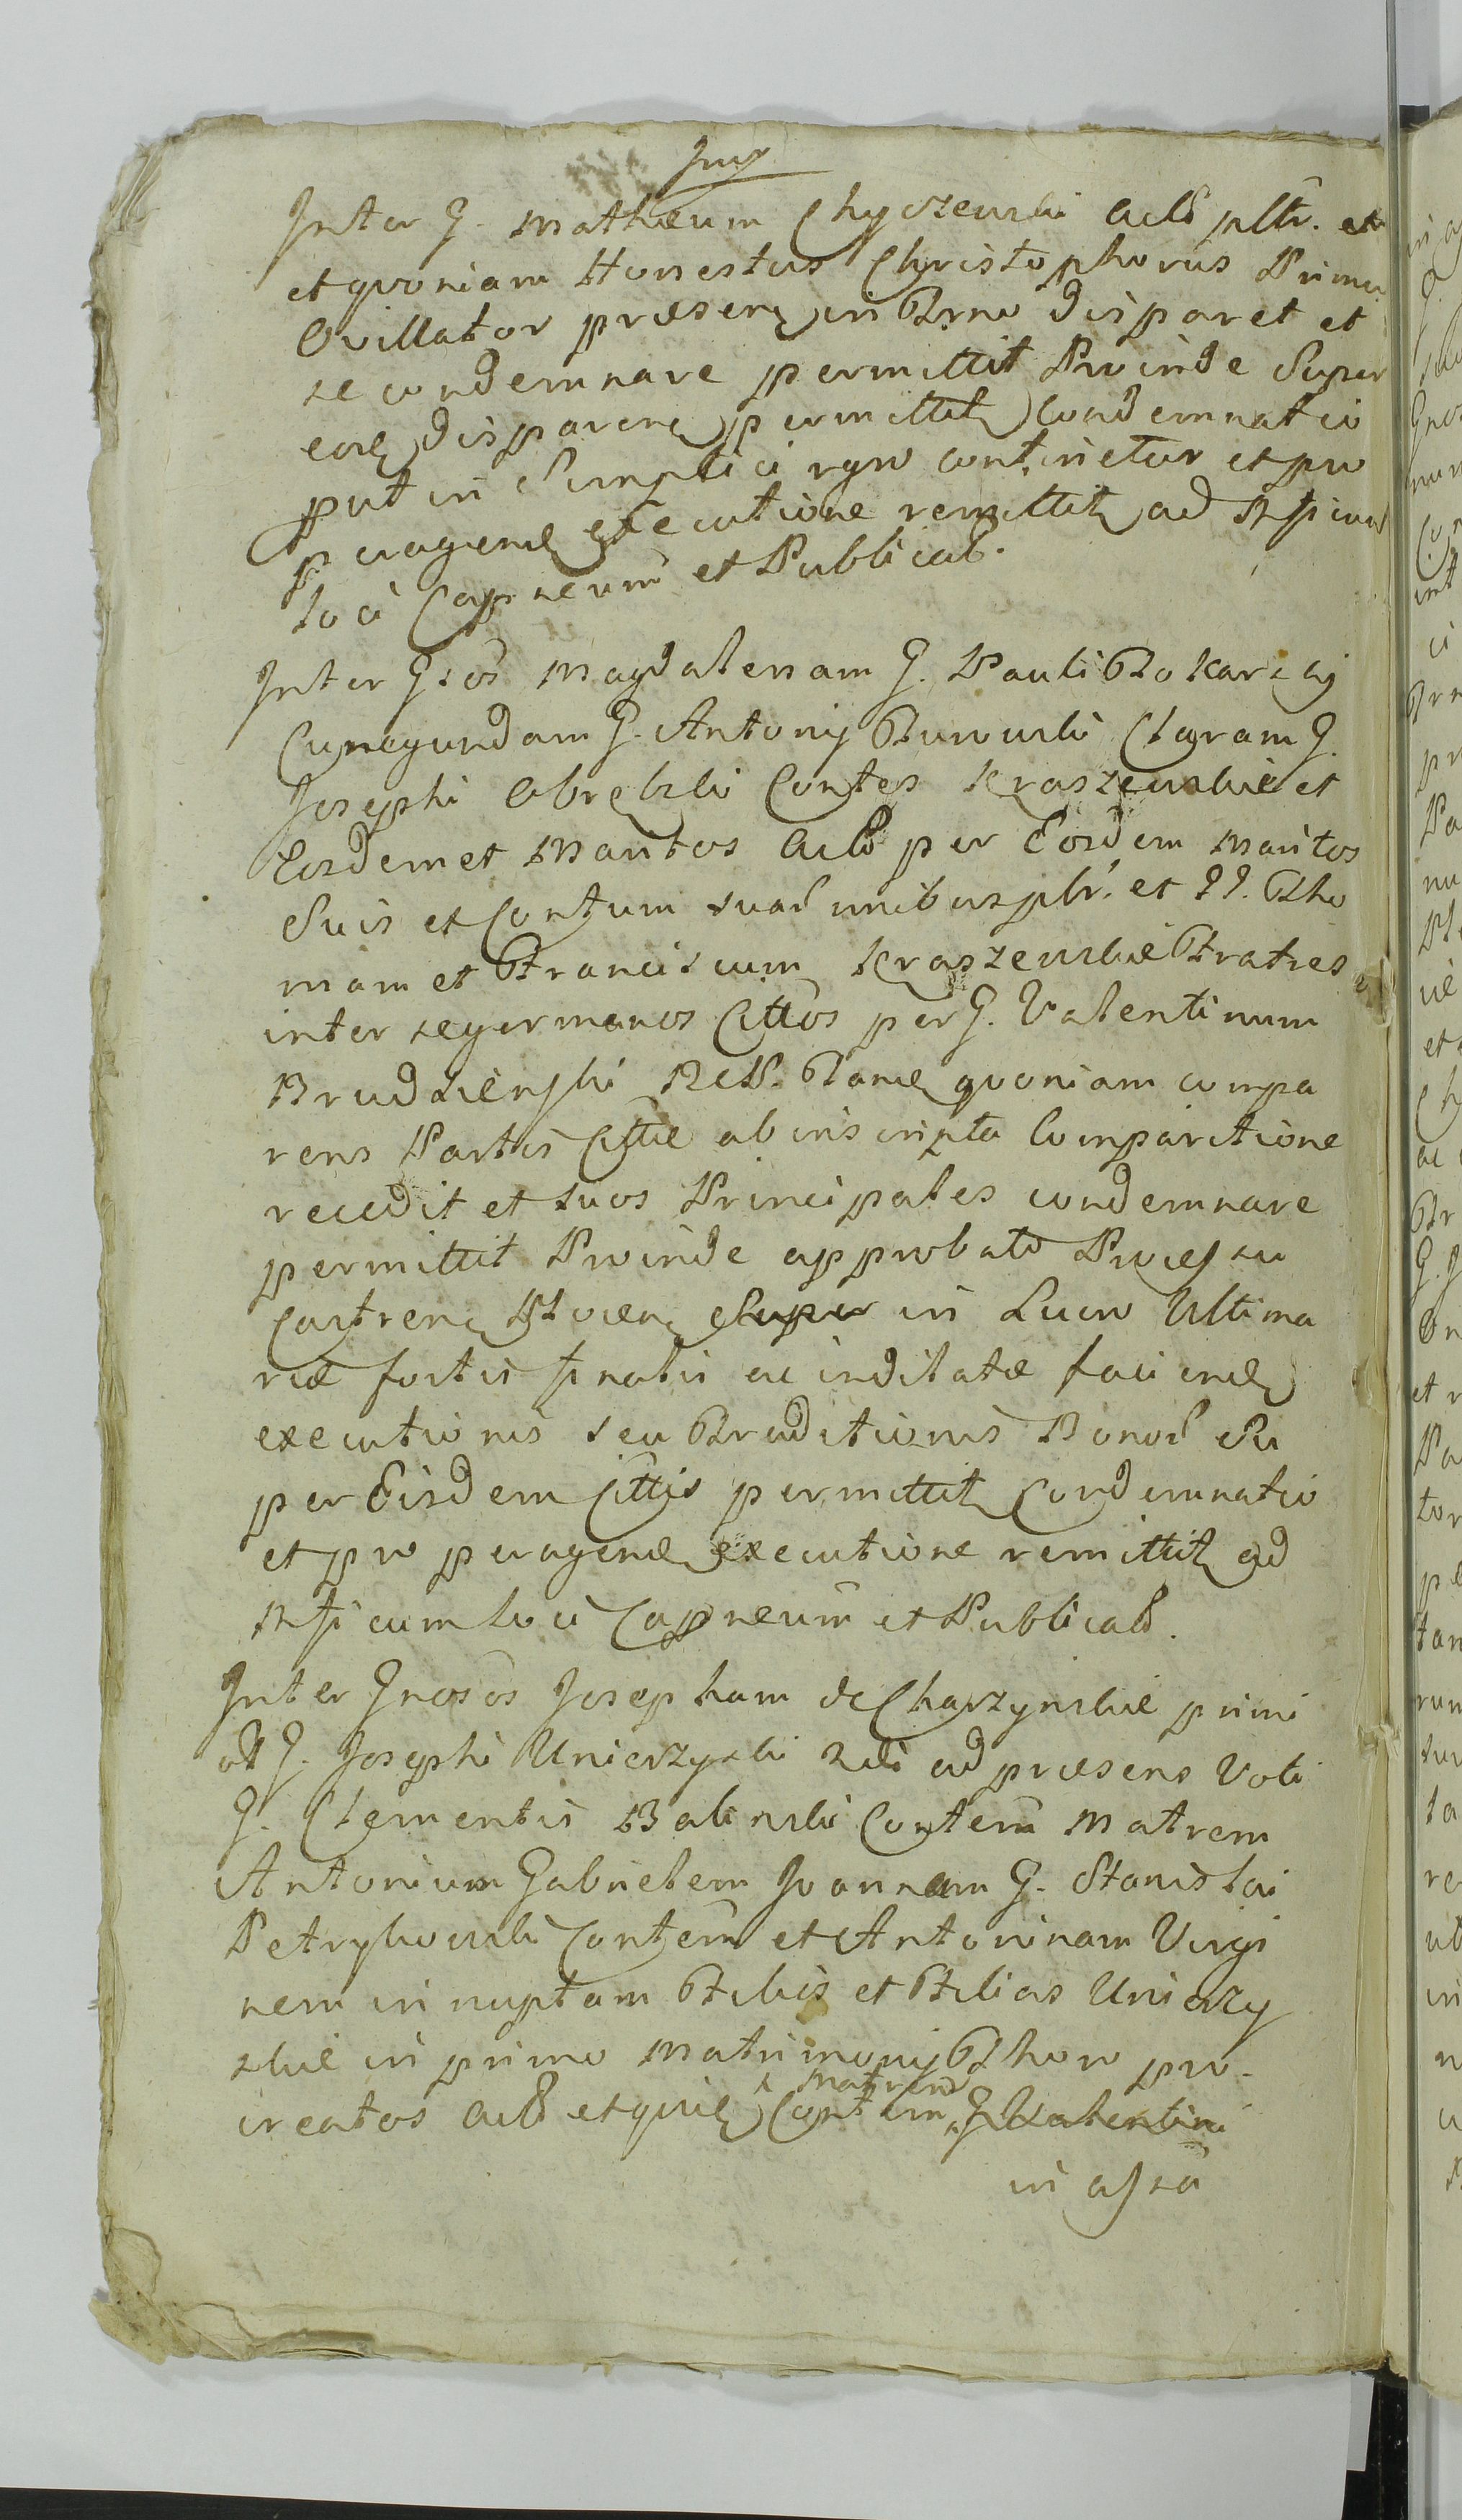 Inter G. Mathæum Chyczewski Act. pltr. et
et quoniam Honestus Christophorus
Ovillator præsen in Trno disparet et
se condemnare permittit Proinde Super
eod disparen permittit Condemnatio
put in Simplici rgro continetur et pro
peragend executione remittit ad
loci Capneum et Publicat.
Inter Gsos Magdalenam G. Pauli Tokarski
Cunegundam G. Antonij Claram G.
Josephi Obrębski Contes Kraszewskie et
Eosdemet Maritos Act. per Eosdem Maritos
Suis et Contum suar nnibus pltr. et GG. Tho
mam et Franciscum Kraszewskie Fratres
inter se germanos Cittos per G. Valentinum
Brudzieński Rctt. Tand quoniam compa
rens Partis Cittæ ab inscripta Comparitione
recedit et suos Principales condemnare
permittit Proinde approbato Processu
Castren Plocen Super in Lucro Ultima
riæ sortis ac inditatæ faciend
executionis seu Traditionis Bonor Su
per Eisdem Cittis permittit Condemnatio
et pro peragend executione remittit ad
cum loci Capneum et Publicat.
Inter Gnosos Josepham de Charzynskie primi
olt G. Josephi Unierzyski 2di ad præsens Voti
G. Clementis Balinski Contem Matrem
Antonium Gabrielem Joannam G. Stanislai
Petrykowski Contem et Antoninam Virgi
nem innuptam Filiis et Filias Unierzy
skie in primo Matrimonij Thoro pro-
creatos Act. et Contem Matrem G. Valentini
in assa